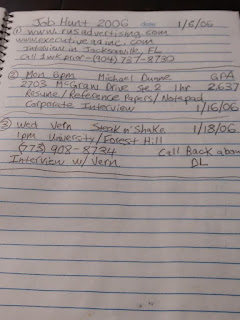 Job Hunt 2006 1/6/06
(1) www.rusadvertising.com
www.executiveadinc.com
Interview in Jacksonville, FL
Call 1 wk prior - (904) 737-8730
(2) Mon 6pm Michael Duane GPA
2703 McGraw Drive Ste. 2 1hr 2.637
Resume/Reference Papers/Notepad
Corporate Interview 1/16/06
(3) Wed Vern Steak n' Shake 1/18/06
1pm University/Forest Hill
(773) 908-8734 Call Back about
Interview w/ Vern DL